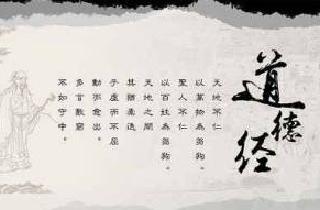 道德经
天地不仁
以萬物為芻狗。
聖人不仁
以百姓為芻狗。
天地之間
其猶
虛而不屈
動而愈出。
多言數窮
不如守中。